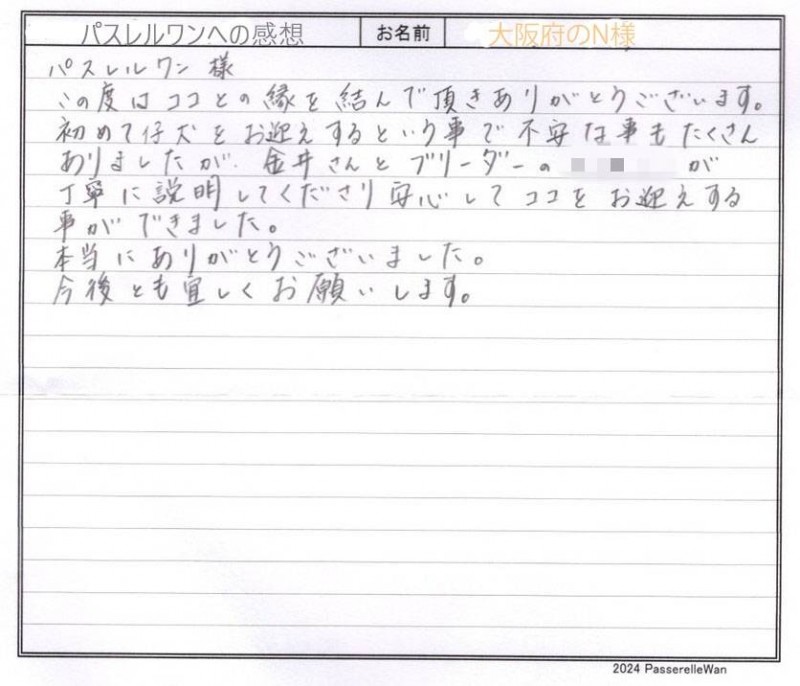 パスレルワンへの感想 お名前 大阪府のN様
パスレルワン 様
この度はココとの縁を結んで頂きありがとうございます。
初めて仔犬をお迎えするという事で不安な事もたくさん
ありましたが、金井さんとブリーダーの が
丁寧に説明してくださり安心してココをお迎えする
事ができました。
本当にありがとうございました。
今後とも宜しくお願いします。
2024 PasserelleWan